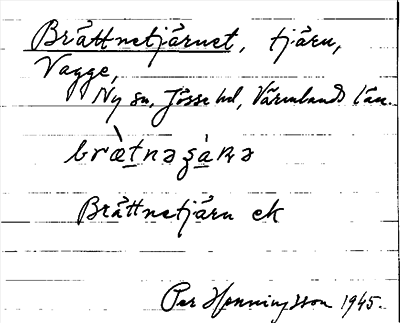 Bråttnetjärnet, tjärn,
Vagge,
Ny sn, Jösse hd, Värmlands län.
bræ̀tnəʂàɴə
Bråttnetjärn ek
Per Henningsson 1945.